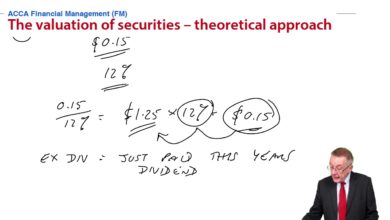 ACCA Financial Management (FM)
The valuation of securities – theoretical approach
$0.15
12%
0.15 / 12% = $1.25 × 12% = $0.15
EX DIV = JUST PAID THIS YEARS
DIVIDEND